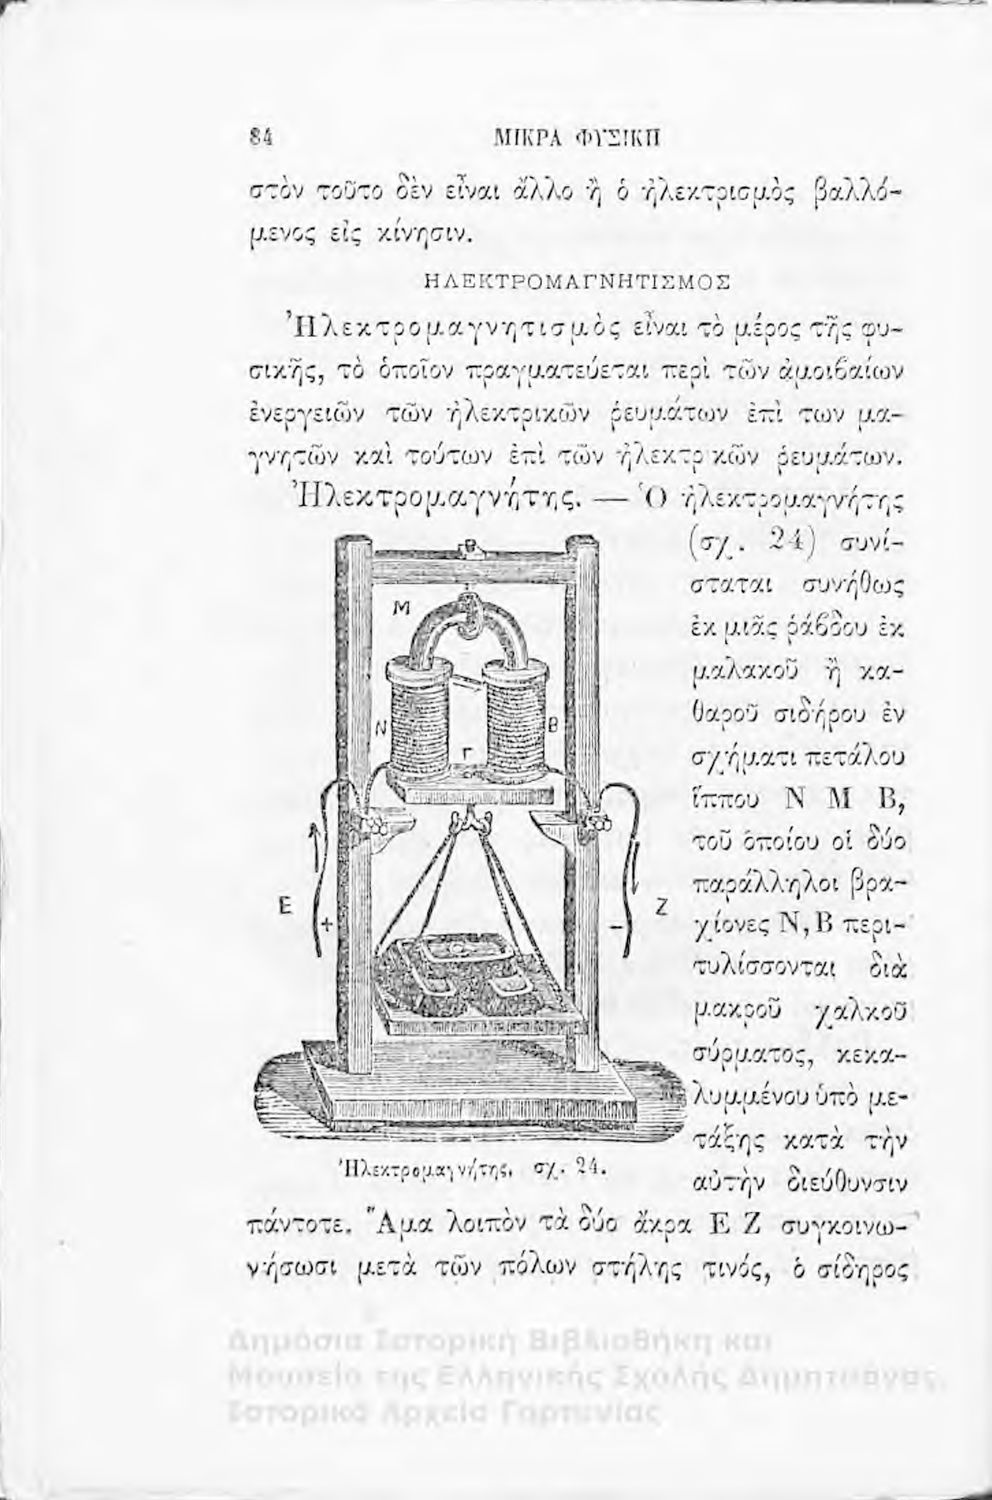 84
ΜΙΚΡΑ ΦΥΣΙΚΗ
στὸν τοῦτο δὲν εἶναι ἄλλο ἢ ὁ ἠλεκτρισμὸς βαλλό-
μενος εἰς κίνησιν.
ΗΛΕΚΤΡΟΜΑΓΝΗΤΙΣΜΟΣ
Ἠλεκτρομαγνητισμὸς εἶναι τὸ μέρος τῆς φυ-
σικῆς, τὸ ὁποῖον πραγματεύεται περὶ τῶν ἀμοιβαίων
ἐνεργειῶν τῶν ἠλεκτρικῶν ῥευμάτων ἐπὶ των μα-
γνητῶν καὶ τούτων ἐπὶ τῶν ἠλεκτρ κῶν ῥευμάτων.
Ἠλεκτρομαγνήτης. — Ὁ ἠλεκτρομαγνήτης
(σχ. 24) συνί-
σταται συνήθως
ἐκ μιᾶς ῥάβδου ἐκ
μαλακοῦ ἢ κα-
θαροῦ σιδήρου ἐν
σχήματι πετάλου
ἵππου Ν Μ Β,
τοῦ ὁποίου οἱ δύο
παράλληλοι βρα-
χίονες Ν, Β περι-
τυλίσσονται διὰ
μακροῦ χαλκοῦ
σύρματος, κεκα-
λυμμένου ὑπὸ με-
τάξης κατὰ τὴν
αὐτὴν διεύθυνσιν
Μ
Ν
Β
Γ
Ε
Ζ
+
−
Ἠλεκτρομαγνήτης, σχ. 24.
πάντοτε. Ἅμα λοιπὸν τὰ δύο ἄκρα Ε Ζ συγκοινω-
νήσωσι μετὰ τῶν πόλων στήλης τινός, ὁ σίδηρος
Δημόσια Ιστορική Βιβλιοθήκη και
Μουσείο της Ελληνικής Σχολής Δημητσάνας,
Ιστορικό Αρχείο Γορτυνίας